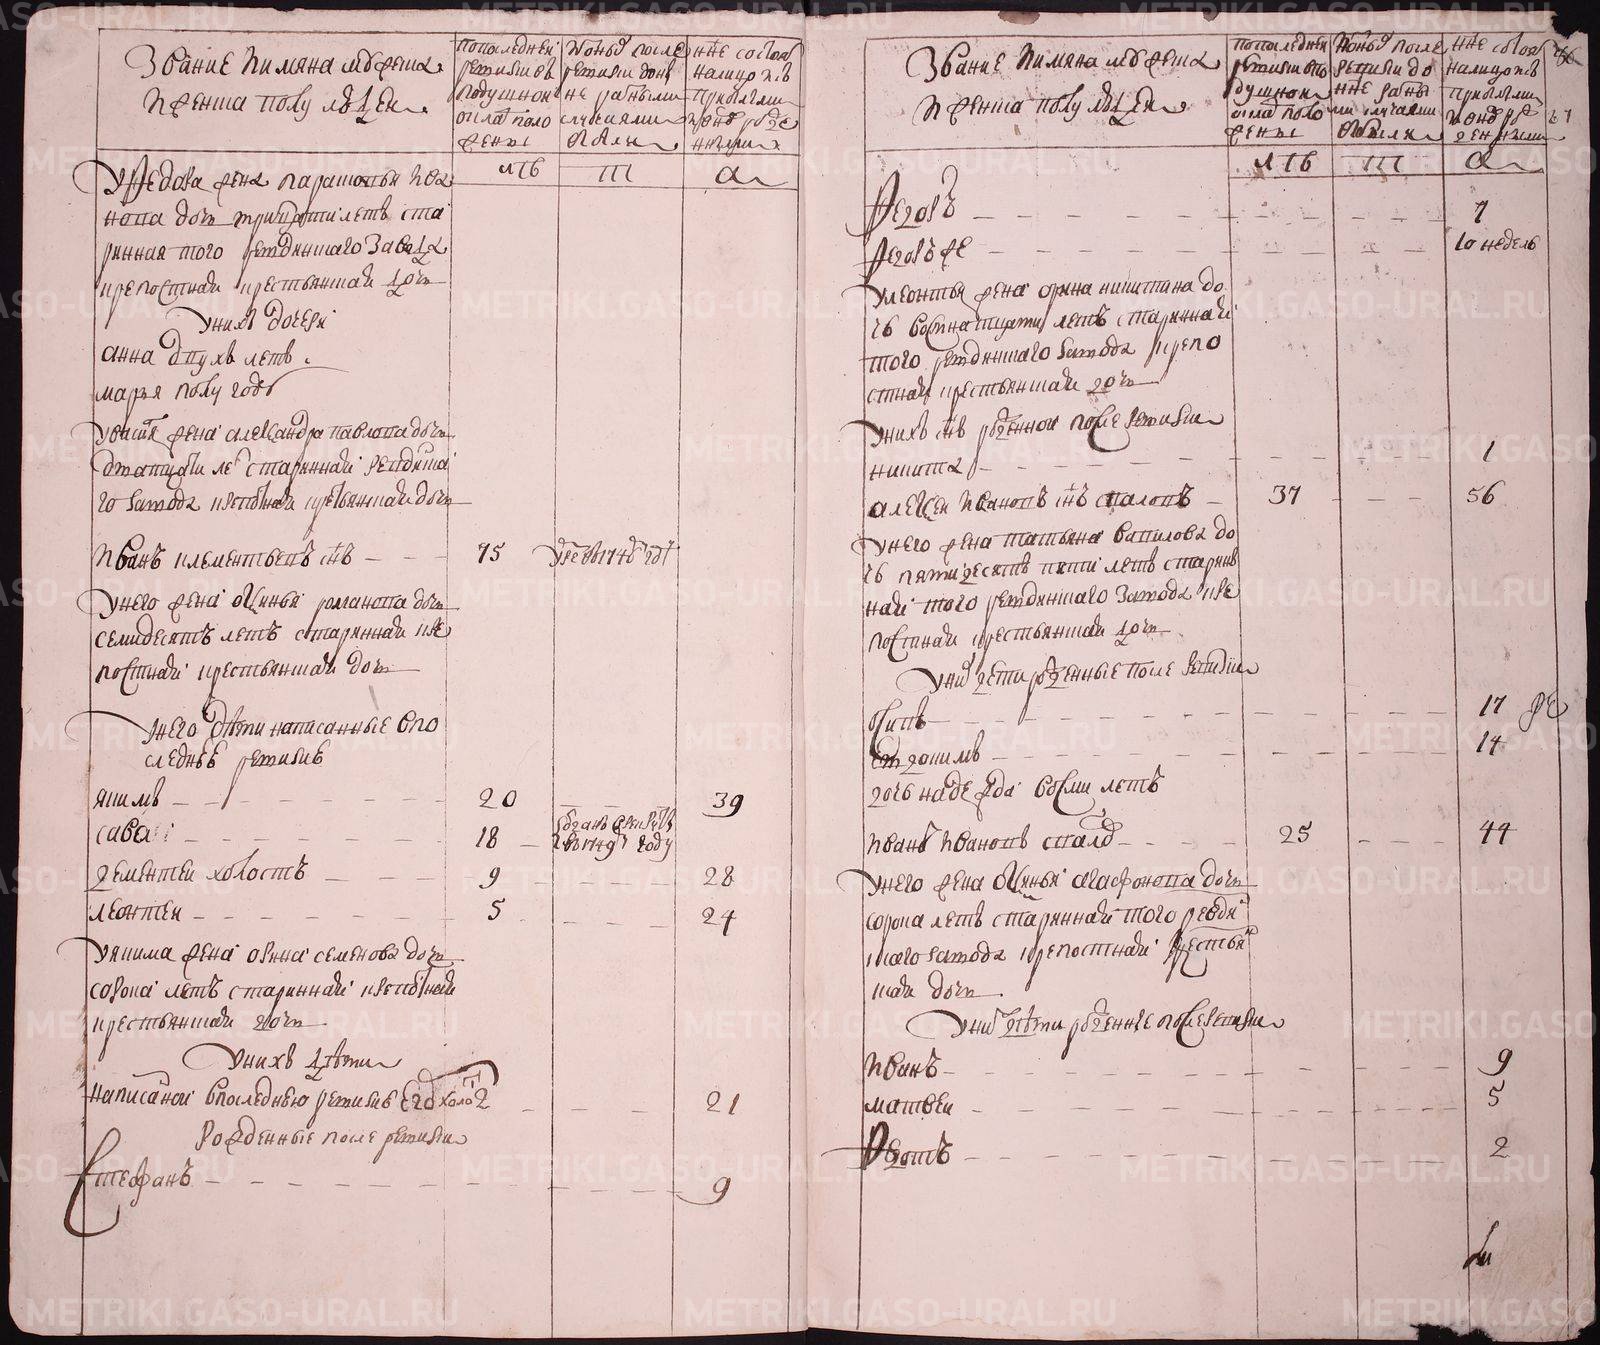 Звание и имяна мужеска
и женска полу людей
попоследней ревизии в подушной оклад положены
и с оных после ревизии до ныне разными случаями убыли
ныне состоя налицо и с прибылыми и вновь рожденными
лѣтъ
лѣта
У Федора жена парасковья ива
нова дочь тритцати летъ ста
ринная того ревдинскаго завода
крепостная крестьянская дочь
у нихъ дочери
анна двухъ летъ
марья полу году
жена александра павлова дочь
дватцати летъ стариннай ревдинска
го завода крепостнай крестьянскай дочь
иванъ клементьевъ сынъ 75 умре в 1748 году
у него жена аксинья романова дочь
семидесятъ летъ стариннай кре
постнай крестьянскай дочь
у него дѣти написанные в по
следнѣе ревизие
якимъ 20 39
сава 18 в 1749 году
дементеи холостъ 9 28
леонтеи 5 24
у якима жена орина семенова дочь
сорока летъ стариннай крепостнай
крестьянскай дочь
у нихъ дѣти
написаной в последнею ревизию 21
рожденные после ревизии
Стефанъ 9
Звание и имяна мужеска
и женска полу людей
попоследней ревизии в подушной оклад положены
и с оных после ревизии до ныне разными случаями убыли
ныне состоя налицо и с прибылыми и вновь рожденными
67
лѣтъ
лѣта
Федоръ 7
Федоръ же 10 недель
у леонтья жена орина никитина до
чь восмнатцати летъ стариннай
того ревдинскаго завода крепо
стнай крестьянскай дочь
у нихъ сынъ рожденной после ревизии
никита 1
алексеи ивановъ сынъ 37 56
у него жена татьяна вавилова до
чь пятидесятъ пяти летъ старин
най того ревдинскаго завода кре
постнай крестьянскай дочь
у них дети рожденные после ревизии
осипъ 17
14
дочь надежда восми летъ
иванъ ивановъ 25 44
у него жена аксинья агафонова дочь
сорока летъ стариннай того ревдин
скаго завода крепостнай крестьян
скай дочь
у них дѣти рожденные после ревизии
иванъ 9
матвеи 5
Федотъ 2